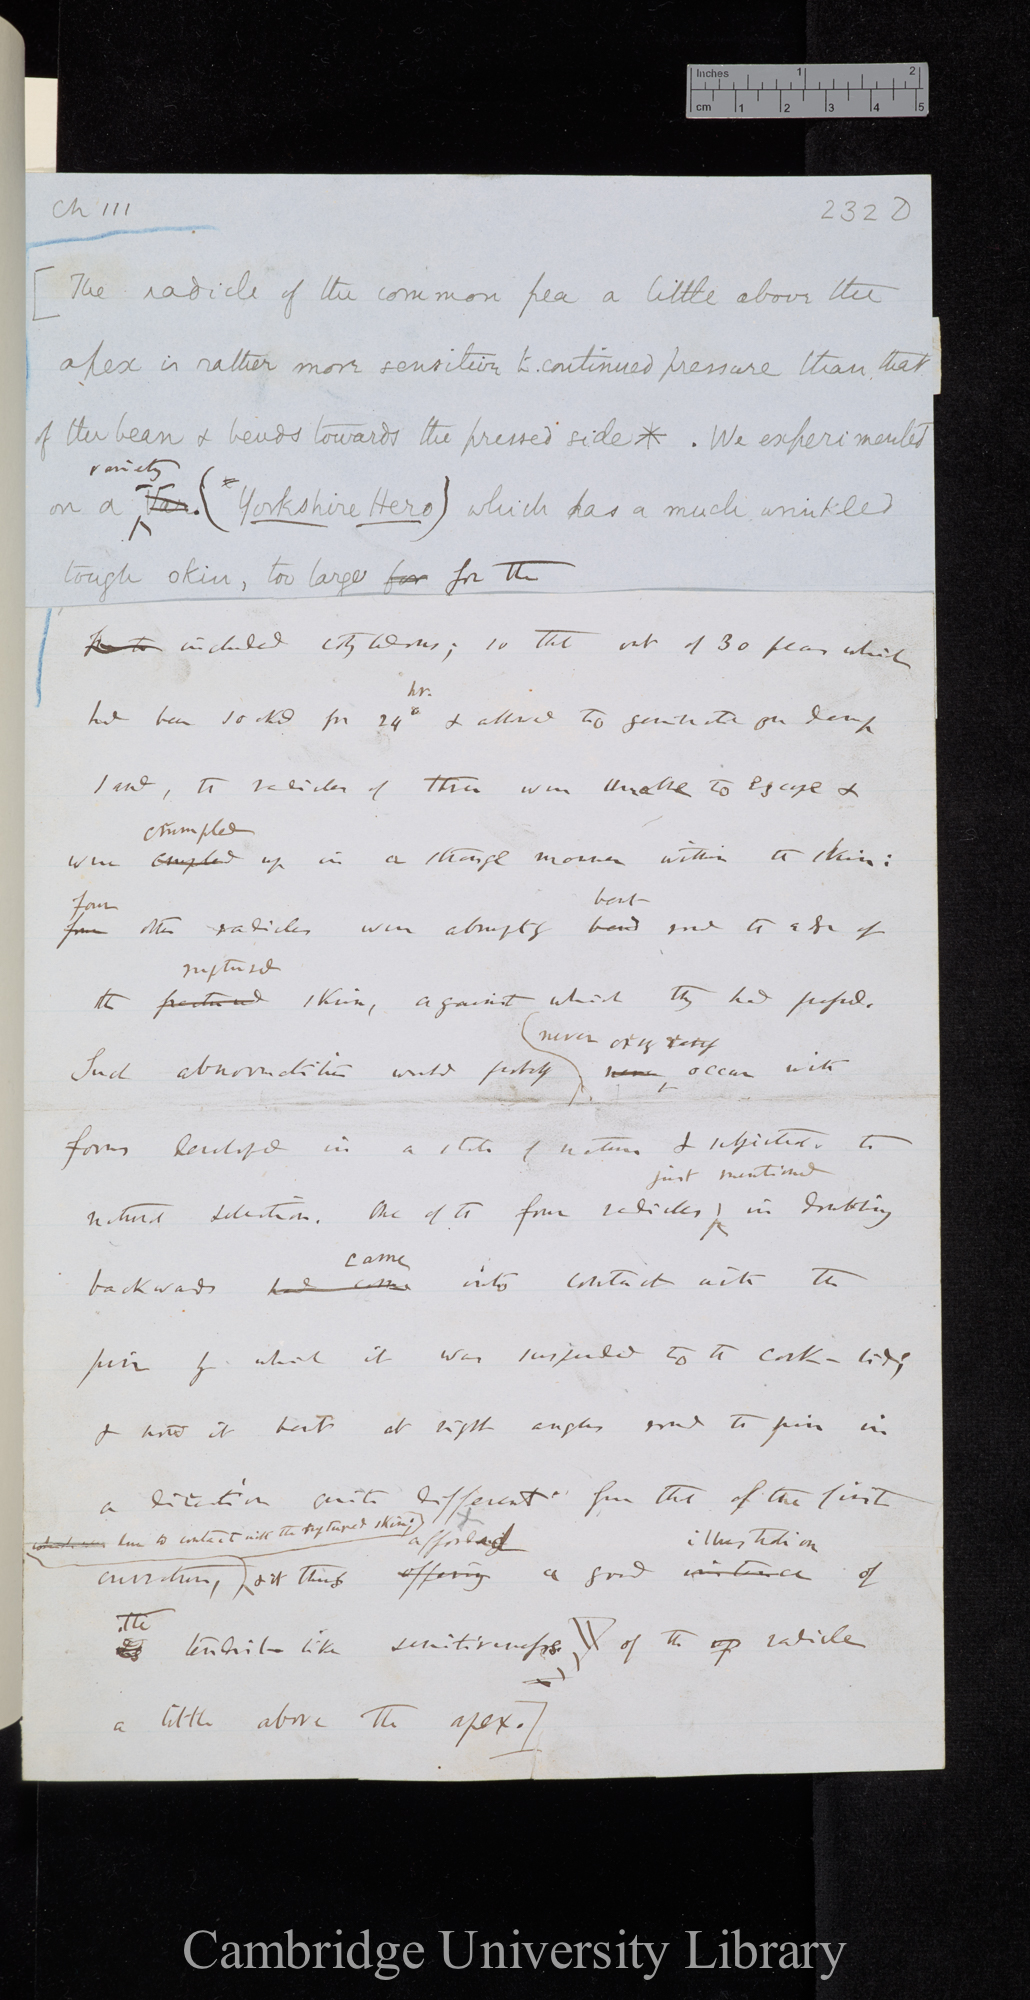 Inches 1 2
cm 1 2 3 4 5
Ch III 232 D
[The radicle of the common pea a little above the
apex is rather more sensitive to continued pressure than that
of the bean & bends towards the pressed side * . We experimented
variety
on a Var. (* Yorkshire Hero) which has a much wrinkled
tough skin, too large for for the
included cotyledons; so that out of 30 peas which
hr.
had been soaked for 24 & allowed to germinate on damp
sand, the radicles of three were unable to escape &
crumpled
were crupled up in a strange manner within the skin:
four
four other radicles were abruptly
bent
bend round the edge of
ruptured
the fractured skin, against which they had pressed.
never or very rarely
Such abnormalities would probably never occur with
forms developed in a state of nature & subjected to
just mentioned
natural selection. One of the four radicles, in doubling
came
backwards had come into contact with the
pin by which it was suspended to the cork-lid;
& now it bent at right angles round the pin in
a direction quite different from that of the first
due to contact with the ruptured skin;
affords
illustration
curvature, & it thus offering a good instance of
the
tendril-like sensitiveness of the radicle
a little above the apex.]
Cambridge University Library